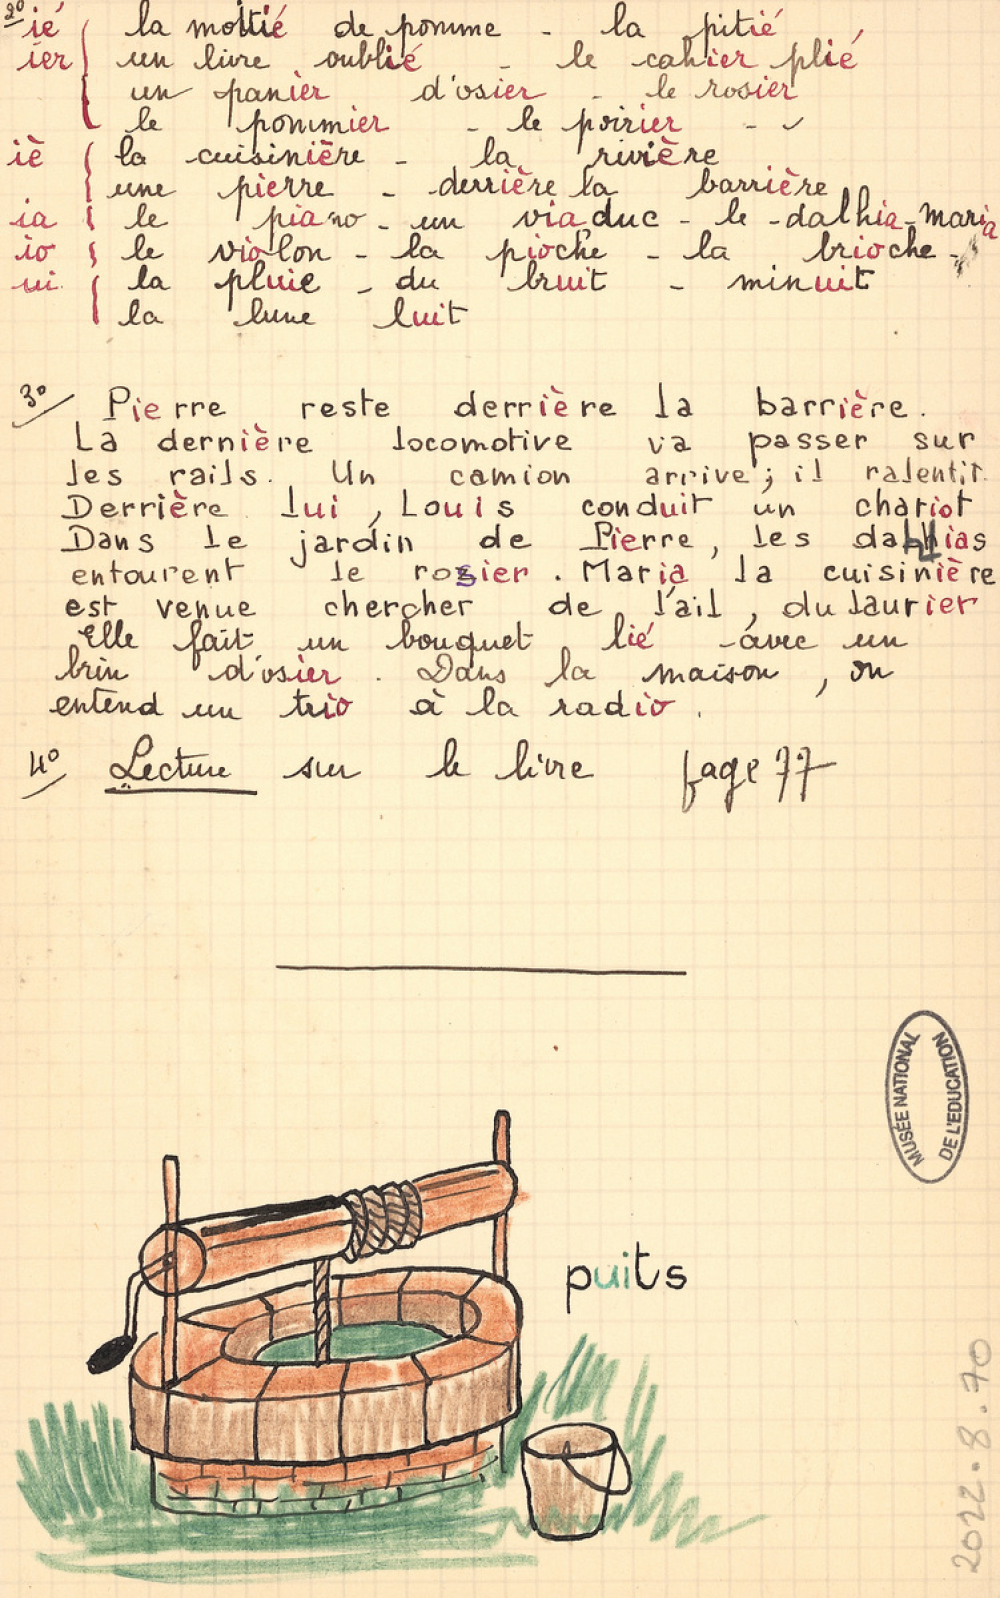 2° ié la moitié de pomme - la pitié,
ier un livre oublié - le cahier plié
un panier d'osier - le rosier
le pommier - le poirier -
iè la cuisinière - la rivière
une pierre - derrière la barrière
ia le piano - un viaduc - le dalhia - maria
io le violon - la pioche - la brioche -
ui la pluie - du bruit - minuit
la lune luit
3° Pierre reste derrière la barrière.
La dernière locomotive va passer sur
les rails. Un camion arrive ; il ralentit.
Derrière lui, Louis conduit un chariot
Dans le jardin de Pierre, les dahlias
entourent le rosier. Maria la cuisinière
est venue chercher de l'ail, du laurier
Elle fait un bouquet lié avec un
brin d'osier. Dans la maison, on
entend un trio à la radio.
4° Lecture sur le livre page 77
MUSÉE NATIONAL
DE L'EDUCATION
puits
2022.8.70